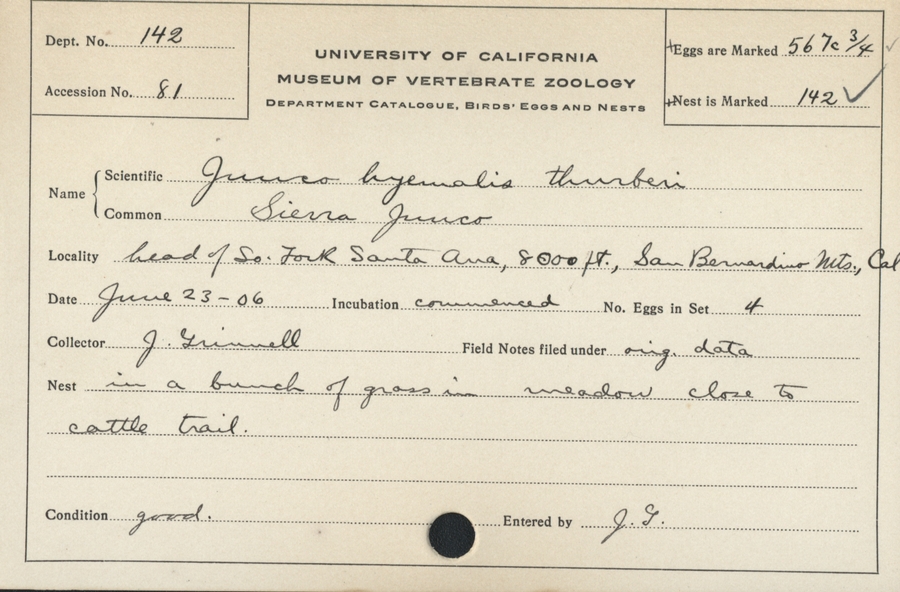 Dept. No. 142
Accession No. 81
UNIVERSITY OF CALIFORNIA
MUSEUM OF VERTEBRATE ZOOLOGY
DEPARTMENT CATALOGUE, BIRDS' EGGS AND NESTS
Eggs are Marked 567c 3/4
Nest is Marked 142 ✓
Name
Scientific Junco hyemalis thurberi
Common Sierra Junco
Locality head of So. Fork Santa Ana, 8000 ft., San Bernardino Mts., Cal
Date June 23-06 Incubation commenced No. Eggs in Set 4
Collector J. Grinnell Field Notes filed under orig. data
Nest in a bunch of grass in meadow close to
cattle trail.
Condition good. Entered by J. G.